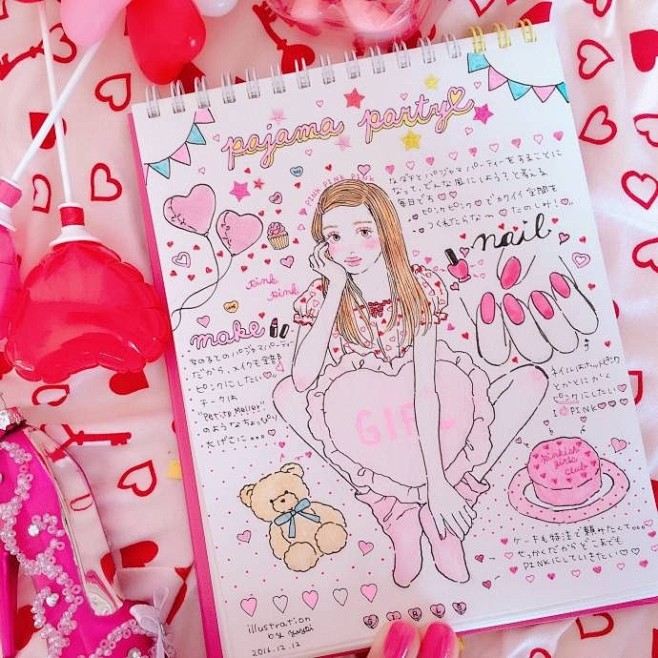 pajama party
PINK PINK PINK
なながとパジャマパーティーをすることに
なって、どんな風にしようと考える
毎日どす♡♡
ピンクピンクでカワイイ空間を
つくれたらな〜 たのしみ!♡
nail
pink
pink
make
女の子とのパジャマパーティー
だから、メイクも全部
ピンクにしたい♡
チークは
"Petite Meller"
のようなちょっぴり
大げさに...
ネイルはホットピンク
とかとにかく
ピンクにしたい♡
I PINK♡♡♡
GIRL
pinkish
girls
club
ケーキも特注で頼みたくて...
せっかくだからどこまでも
PINKにしていきたい♡♡
GIRLS
illustration
by
2016.12.12